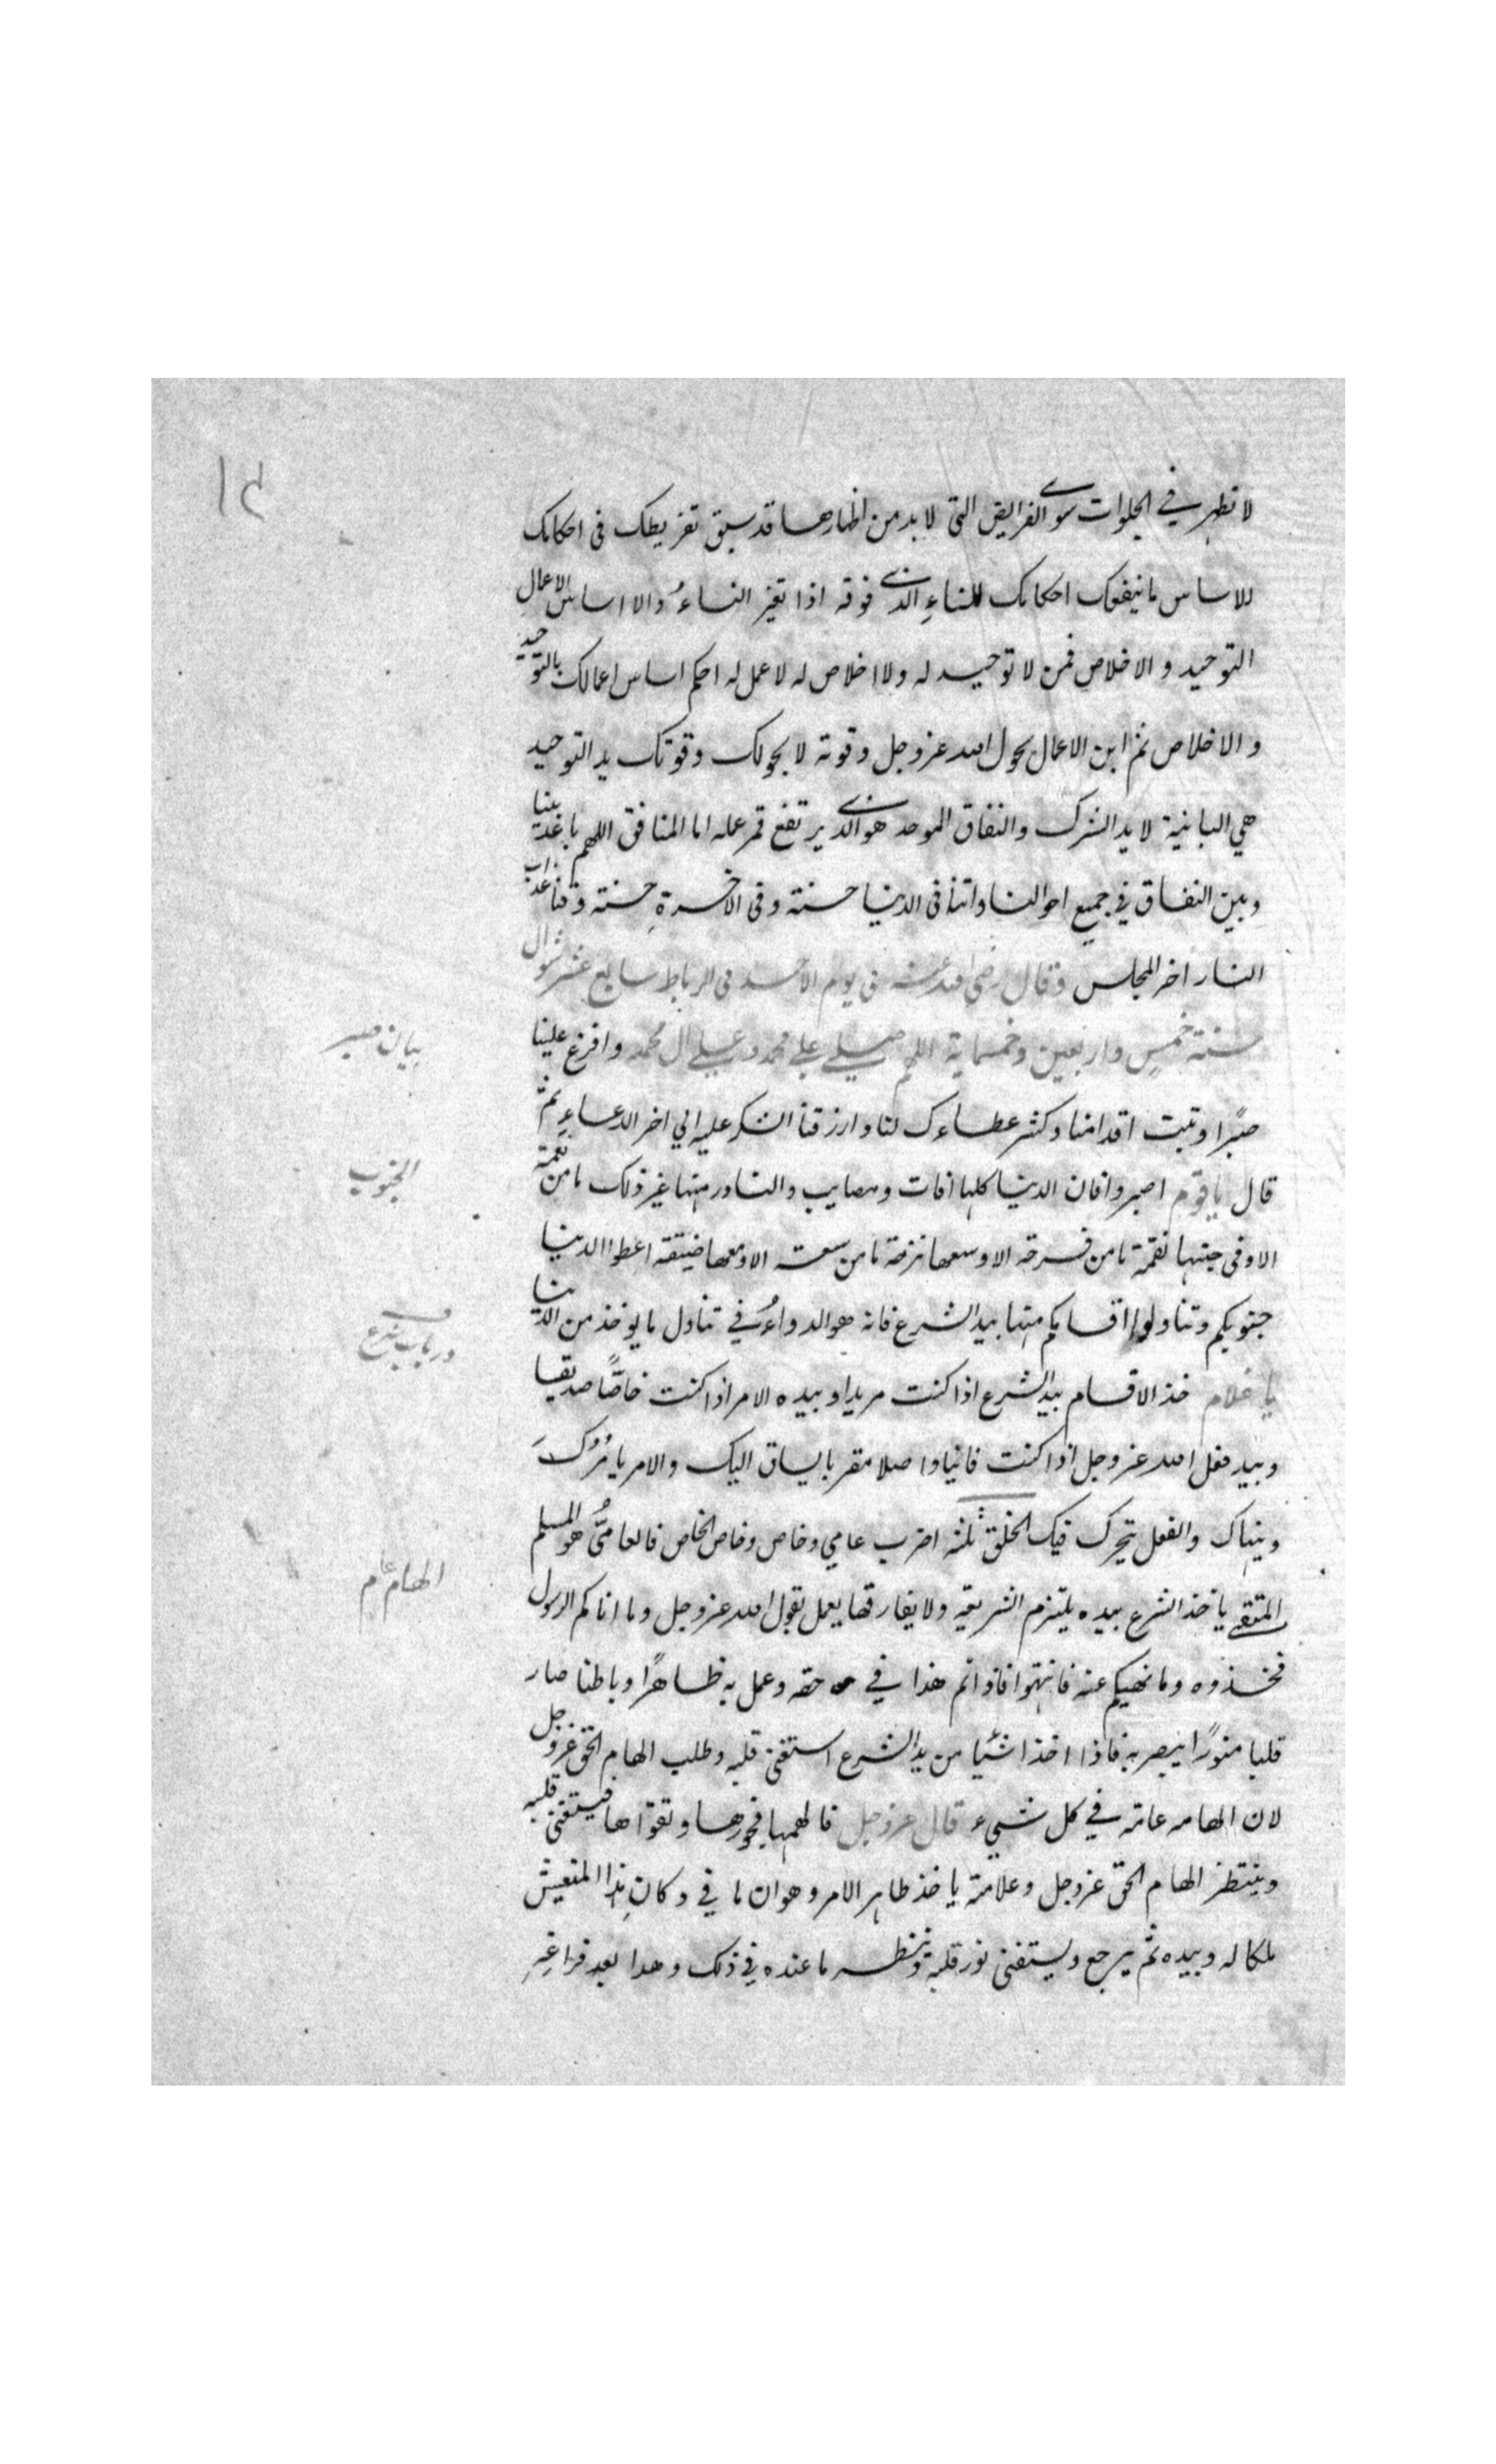 ١٤
لا تظهر في الجلوات سوى الفرايض التي لا بد من اظهارها قد سبق تفريطك في احكامك
للاساس ما ينفعك احكامك للبناء الذي فوقه اذا تغير البناء والاساس الاعمال
التوحيد و الاخلاص فمن لا توحيد له ولا اخلاص له لا عمل له احكم اساس اعمالك بالتوحيد
و الاخلاص ثم ابن الاعمال بحول الله عز وجل وقوته لا بحولك وقوتك يد التوحيد
هي البانية لا يد الشرك والنفاق الموحد هو الذي يرتفع قمر عمله اما المنافق اللهم باعد بيننا
وبين النفاق في جميع احوالنا واتنا في الدنيا حسنة وفي الاخرة حسنة وقنا عذاب
النار اخر المجلس وقال رضي الله عنه في يوم الاحد في الرباط سابع عشر شوال
سنة خمس واربعين وخمسماية اللهم صلي على محمد وعلى ال محمد وافرغ علينا
صبرًا وثبت اقدامنا وكثر عطاءك لنا وارزقنا الشكر عليه الي اخر الدعاء ثم
قال يا قوم اصبروا فان الدنيا كلها افات ومصايب والنادر منها غير ذلك ما من نعمة
الا وفي جنبها نقمة ما من فرحة الا ومعها ترحة ما من سعة الا ومعها ضيقة اعطوا الدنيا
جنوبكم وتناولوا اقسامكم منها بيد الشرع فانه هو الدواءُ في تناول ما يوخذ من الدنيا
يا غلام خذ الاقسام بيد الشرع اذا كنت مريدا وبيده الامر اذا كنت خاصًّا صديقا
وبيد فعل الله عز وجل اذا كنت فانيا واصلا مقربا يساق اليك والامر يامُرُكَ
وينهاك والفعل يتحرك فيك الخلق ثلثة اضرب عامي وخاص وخاص الخاص فالعاميُّ هو المسلم
المتقي ياخذ الشرع بيده يلتزم الشريعة ولا يفارقها يعمل بقول الله عز وجل وما اتاكم الرسول
فخذوه وما نهيكم عنه فانتهوا فاذا تم هذا في حقه وعمل به ظاهرًا وباطنا صار
قلبا منورًا يبصر به فاذا اخذ شيئا من يد الشرع استفتى قلبه وطلب الهام الحق عز وجل
لان الهامه عامة في كل شيء قال عز وجل فالهمها فجورها وتقواها فيستفتى قلبه
وينتظر الهام الحق عز وجل وعلامته ياخذ ظاهر الامر وهو ان ما في دكان هذا المتعيش
ملكا له وبيده ثم يرجع ويستفتى نور قلبه وينظر ما عنده في ذلك وهذا بعد فراغهِ
بيان صبر
الجنوب
در باب شرع
الهام عام